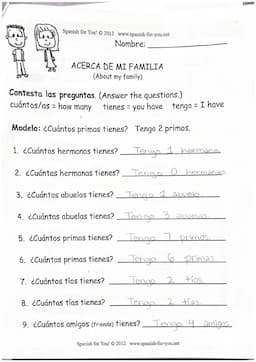 Spanish for You! © 2012 www.spanish-for-you.net
Nombre:
ACERCA DE MI FAMILIA
(About my family)
Contesta las preguntas. (Answer the questions.)
cuántos/as = how many tienes = you have tengo = I have
Modelo: ¿Cuántos primos tienes? Tengo 2 primos.
1. ¿Cuántos hermanos tienes? Tengo 1 hermano
2. ¿Cuántas hermanas tienes? Tengo 0 hermanas
3. ¿Cuántos abuelos tienes? Tengo 1 abuelo.
4. ¿Cuántas abuelas tienes? Tengo 3 abuela
5. ¿Cuántos primos tienes? Tengo 7 primos.
6. ¿Cuántas primas tienes? Tengo 6 primas
7. ¿Cuántos tíos tienes? Tengo 2 tíos.
8. ¿Cuántas tías tienes? Tengo 2 tías.
9. ¿Cuántos amigos (friends) tienes? Tengo 4 amigos
Spanish for You! © 2012 www.spanish-for-you.net